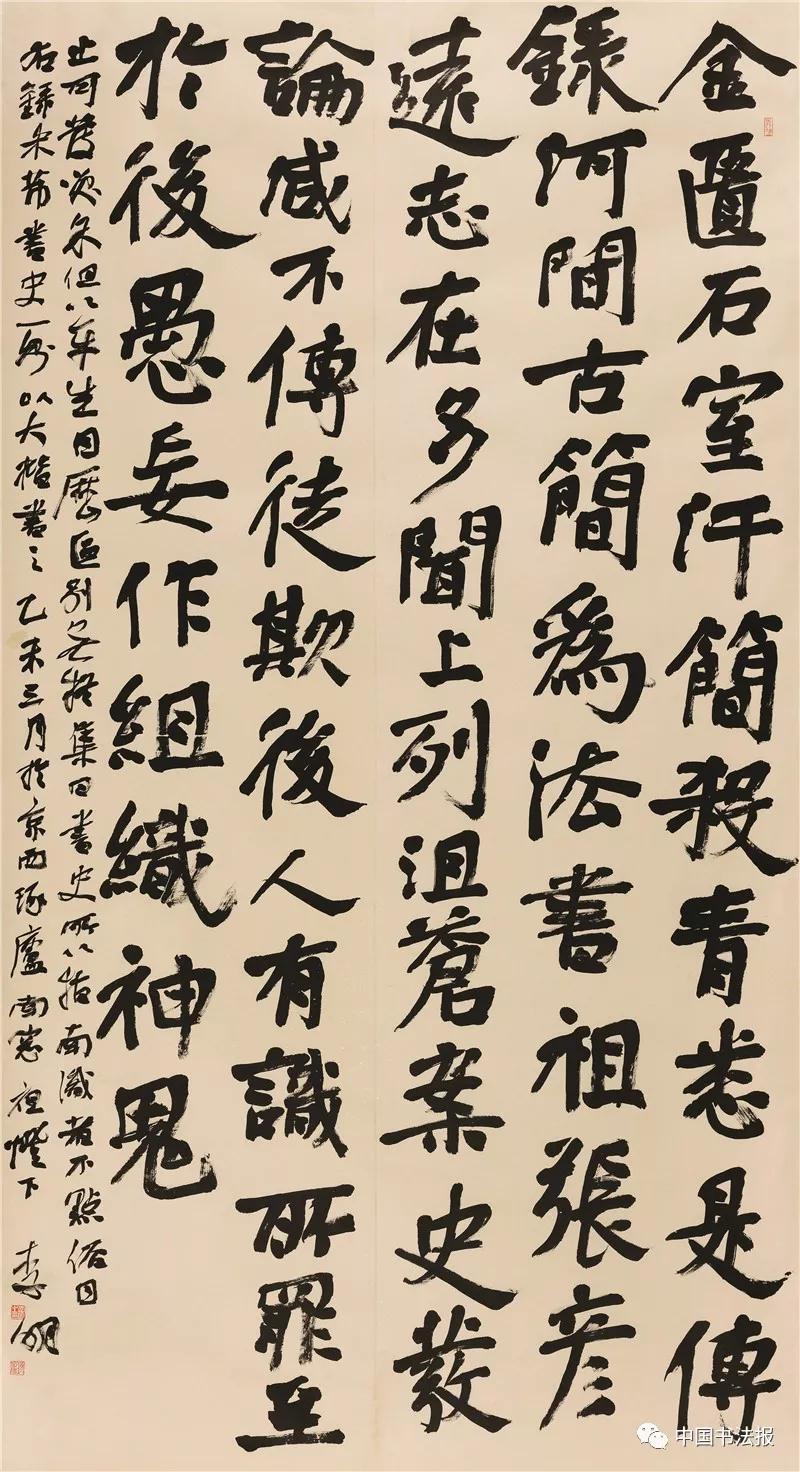 金匱石室汗簡殺青悉是傳
錄河間古簡爲法書祖張彦
遠志在多聞上列沮蒼案史發
論咸不傳徒欺後人有識所罪至
於後愚妄作組織神鬼
止可發笑余但以平生目歷區別無疑集曰書史所以指南識者不點俗目
右錄米芾書史一則以大楷書之乙未三月於京西琢廬南窓夜燈下 李明
中国书法报